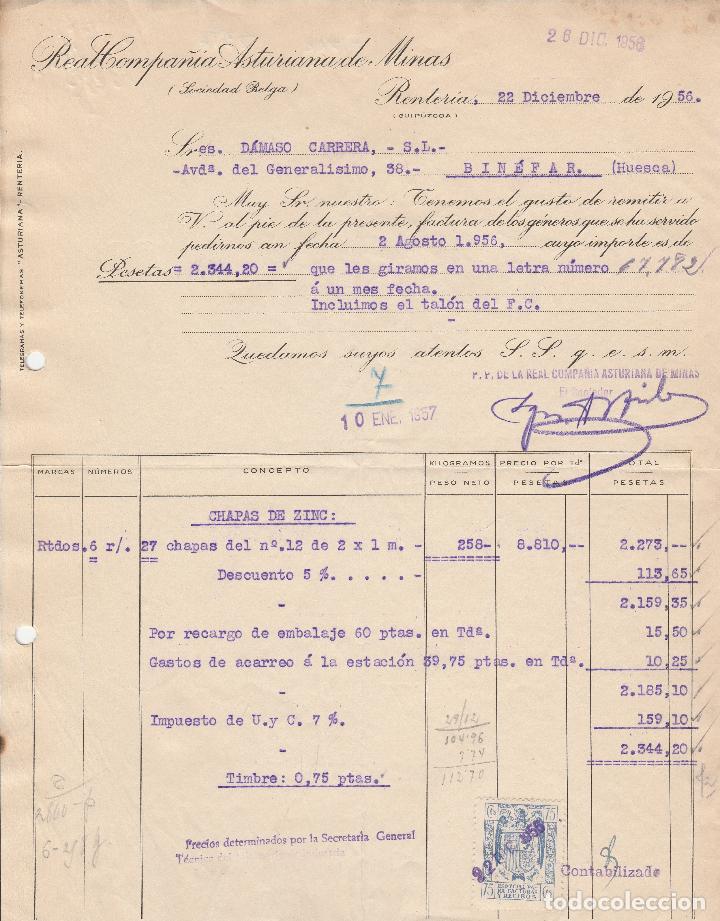 28 DIC. 1956
Real Compañía Asturiana de Minas
(Sociedad Belga)
Rentería, 22 Diciembre de 1956.
(GUIPUZCOA)
Sres. DÁMASO CARRERA, - S.L.-
-Avdª. del Generalisimo, 38.- BINÉFAR. (Huesca)
Muy Sr. nuestro: Tenemos el gusto de remitir a
V. al pie de la presente, factura de los géneros que se ha servido
pedirnos con fecha 2 Agosto 1.956, cuyo importe es de
Pesetas = 2.344,20 = que les giramos en una letra número 67,782/
á un mes fecha.
Incluimos el talón del F.C.
-
Quedamos suyos atentos S. S. q. e. s. m.
TELEGRAMAS Y TELEFONEMAS "ASTURIANA" - RENTERIA.
P. P. DE LA REAL COMPAÑIA ASTURIANA DE MINAS
7
10 ENE. 1957
MARCAS NÚMEROS CONCEPTO KILOGRAMOS PRECIO POR Tdª TOTAL
PESO NETO PESETAS PESETAS
CHAPAS DE ZINC:
Rtdos. 6 r/. 27 chapas del nº.12 de 2 x 1 m. - 258- 8.810,-- 2.273,--
Descuento 5 %. . . . . - 113,65
- 2.159,35
Por recargo de embalaje 60 ptas. en Tdª. 15,50
Gastos de acarreo á la estación 39,75 ptas. en Tdª. 10,25
- 2.185,10
Impuesto de U.y C. 7 %. 159,10
29/12
104'96
774
11270
- 2.344,20
Timbre: 0,75 ptas.
Precios determinados por la Secretaria General
Técnica del
75 75
ESPECIAL PA-
RA FACTURAS
Y RECIBOS
Contabilizado
todocoleccion